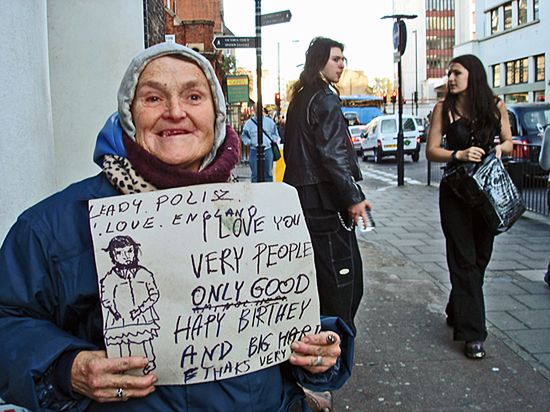 LEADY. POLISZ
I LOVE. ENGLAND
I LOVE YOU
VERY PEOPLE
ONLY GOOD
HAPY BIRTHEY
AND BIG HAR
THAKS VERY